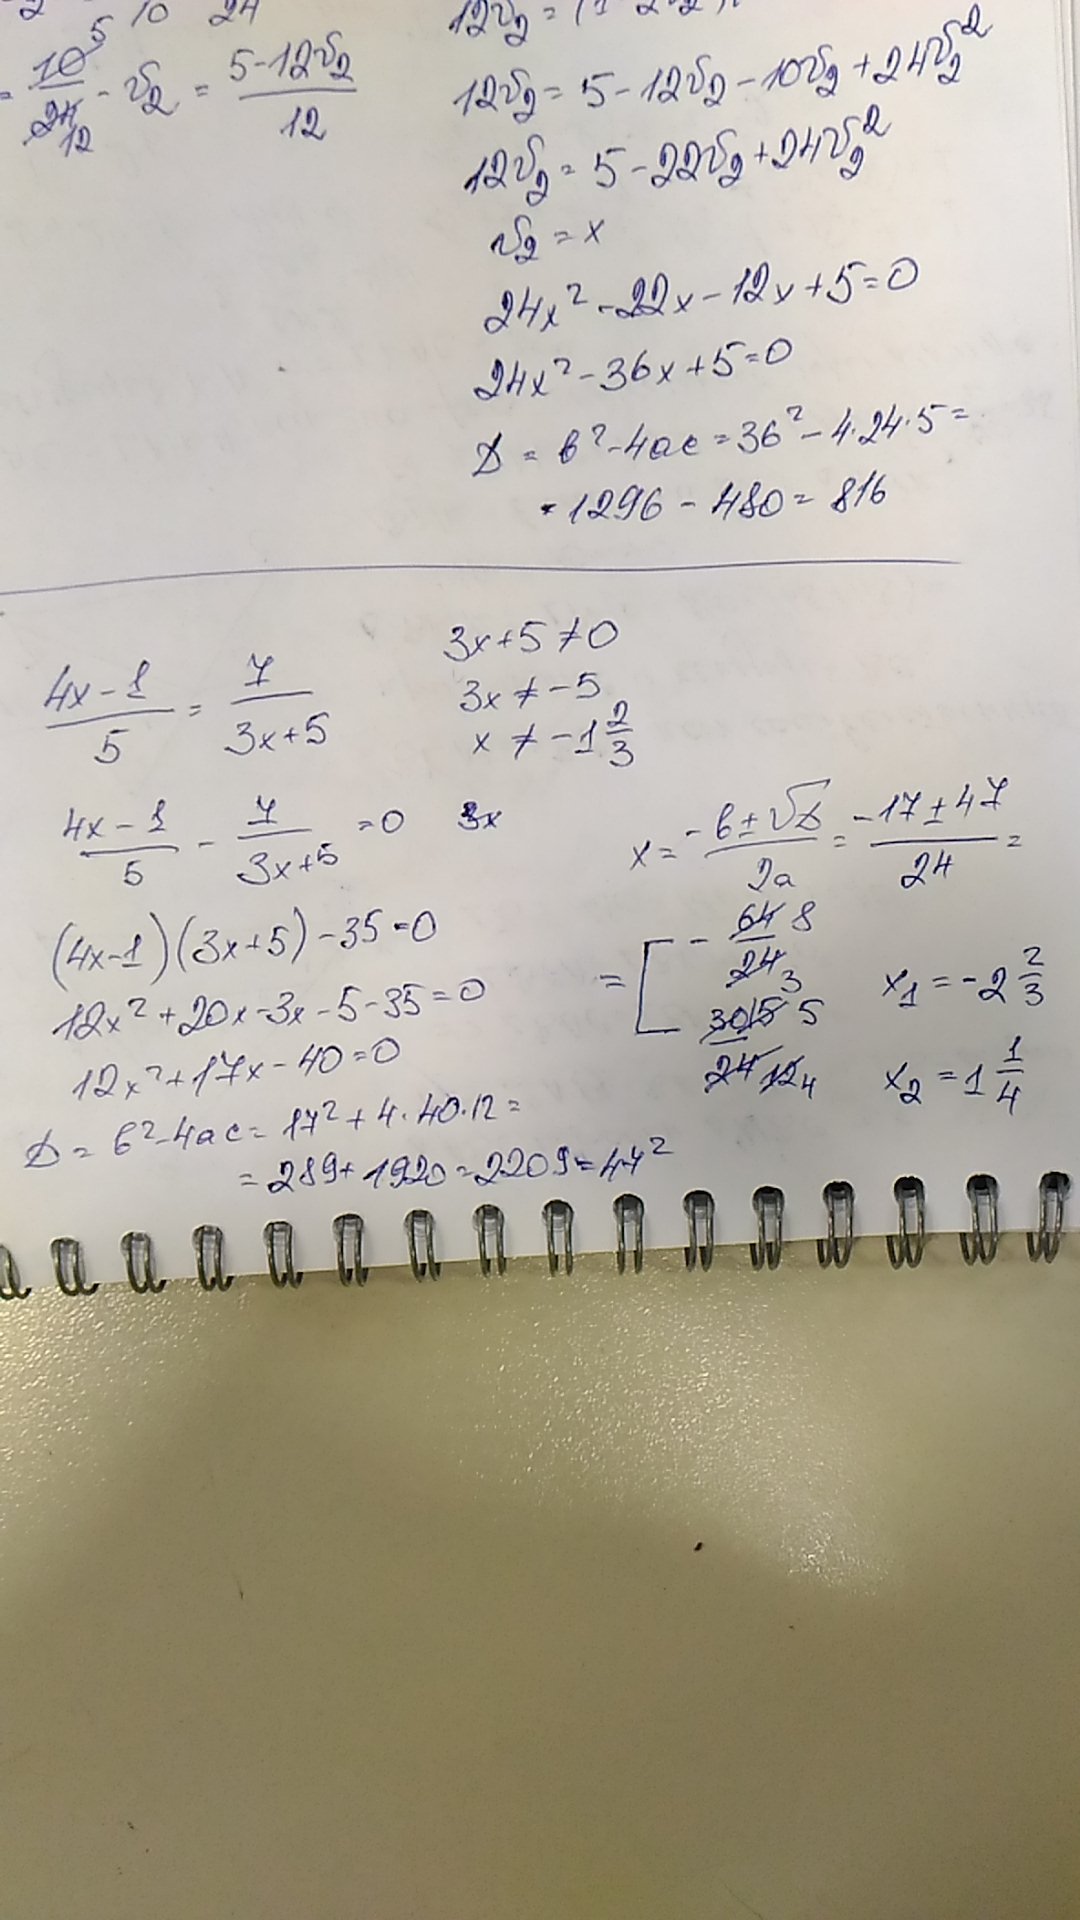 10 24
= 10/24 5/12 - v₂ = (5-12v₂)/12
12v₂ = 5-12v₂-10v₂+24v₂²
12v₂ = 5-22v₂+24v₂²
v₂ = x
24x²-22x-12x+5=0
24x²-36x+5=0
D = b²-4ac = 36²-4·24·5=
=1296-480=816
(4x-1)/5 = 7/(3x+5)
3x+5≠0
3x≠-5
x≠-1 2/3
(4x-1)/5 - 7/(3x+5) = 0 3x
(4x-1)(3x+5)-35=0
12x²+20x-3x-5-35=0
12x²+17x-40=0
D = b²-4ac = 17²+4·40·12=
=289+1920=2209=47²
x = (-b±√D)/2a = (-17±47)/24 =
= [ -64/24 8/3 x₁ = -2 2/3
30/24 15/12 5/4 x₂ = 1 1/4